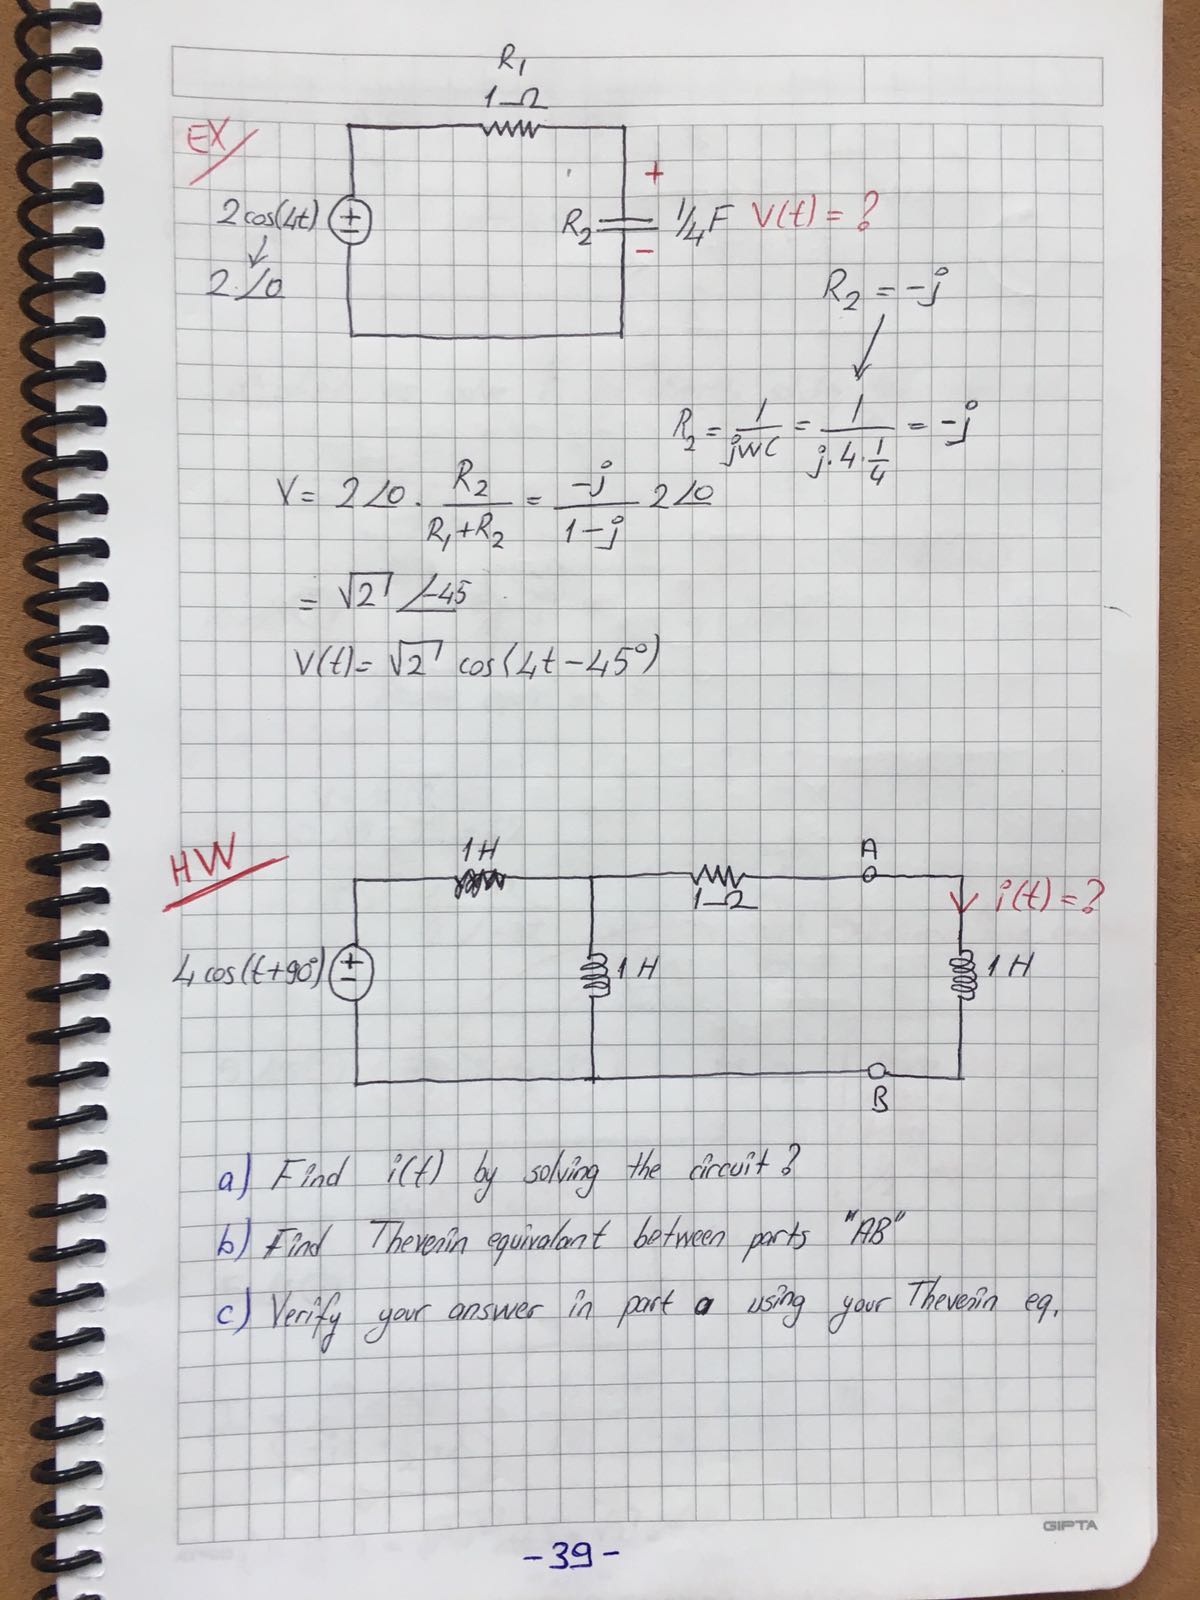 R1
1Ω
EX
2cos(4t)
2∠0
R2
+
-
1/4F V(t) = ?
R2 = -j
R2 = 1/jWC = 1/j.4.1/4 = -j
V = 2∠0 . R2/R1+R2 = -j/1-j 2∠0
= √2 ∠-45
V(t) = √2 cos(4t-45°)
HW
1H
A
1Ω
i(t) = ?
4cos(t+90°)
1H
1H
B
a) Find i(t) by solving the circuit?
b) Find Thevenin equivalant between parts "AB"
c) Verify your answer in part a using your Thevenin eq.
GIPTA
-39-